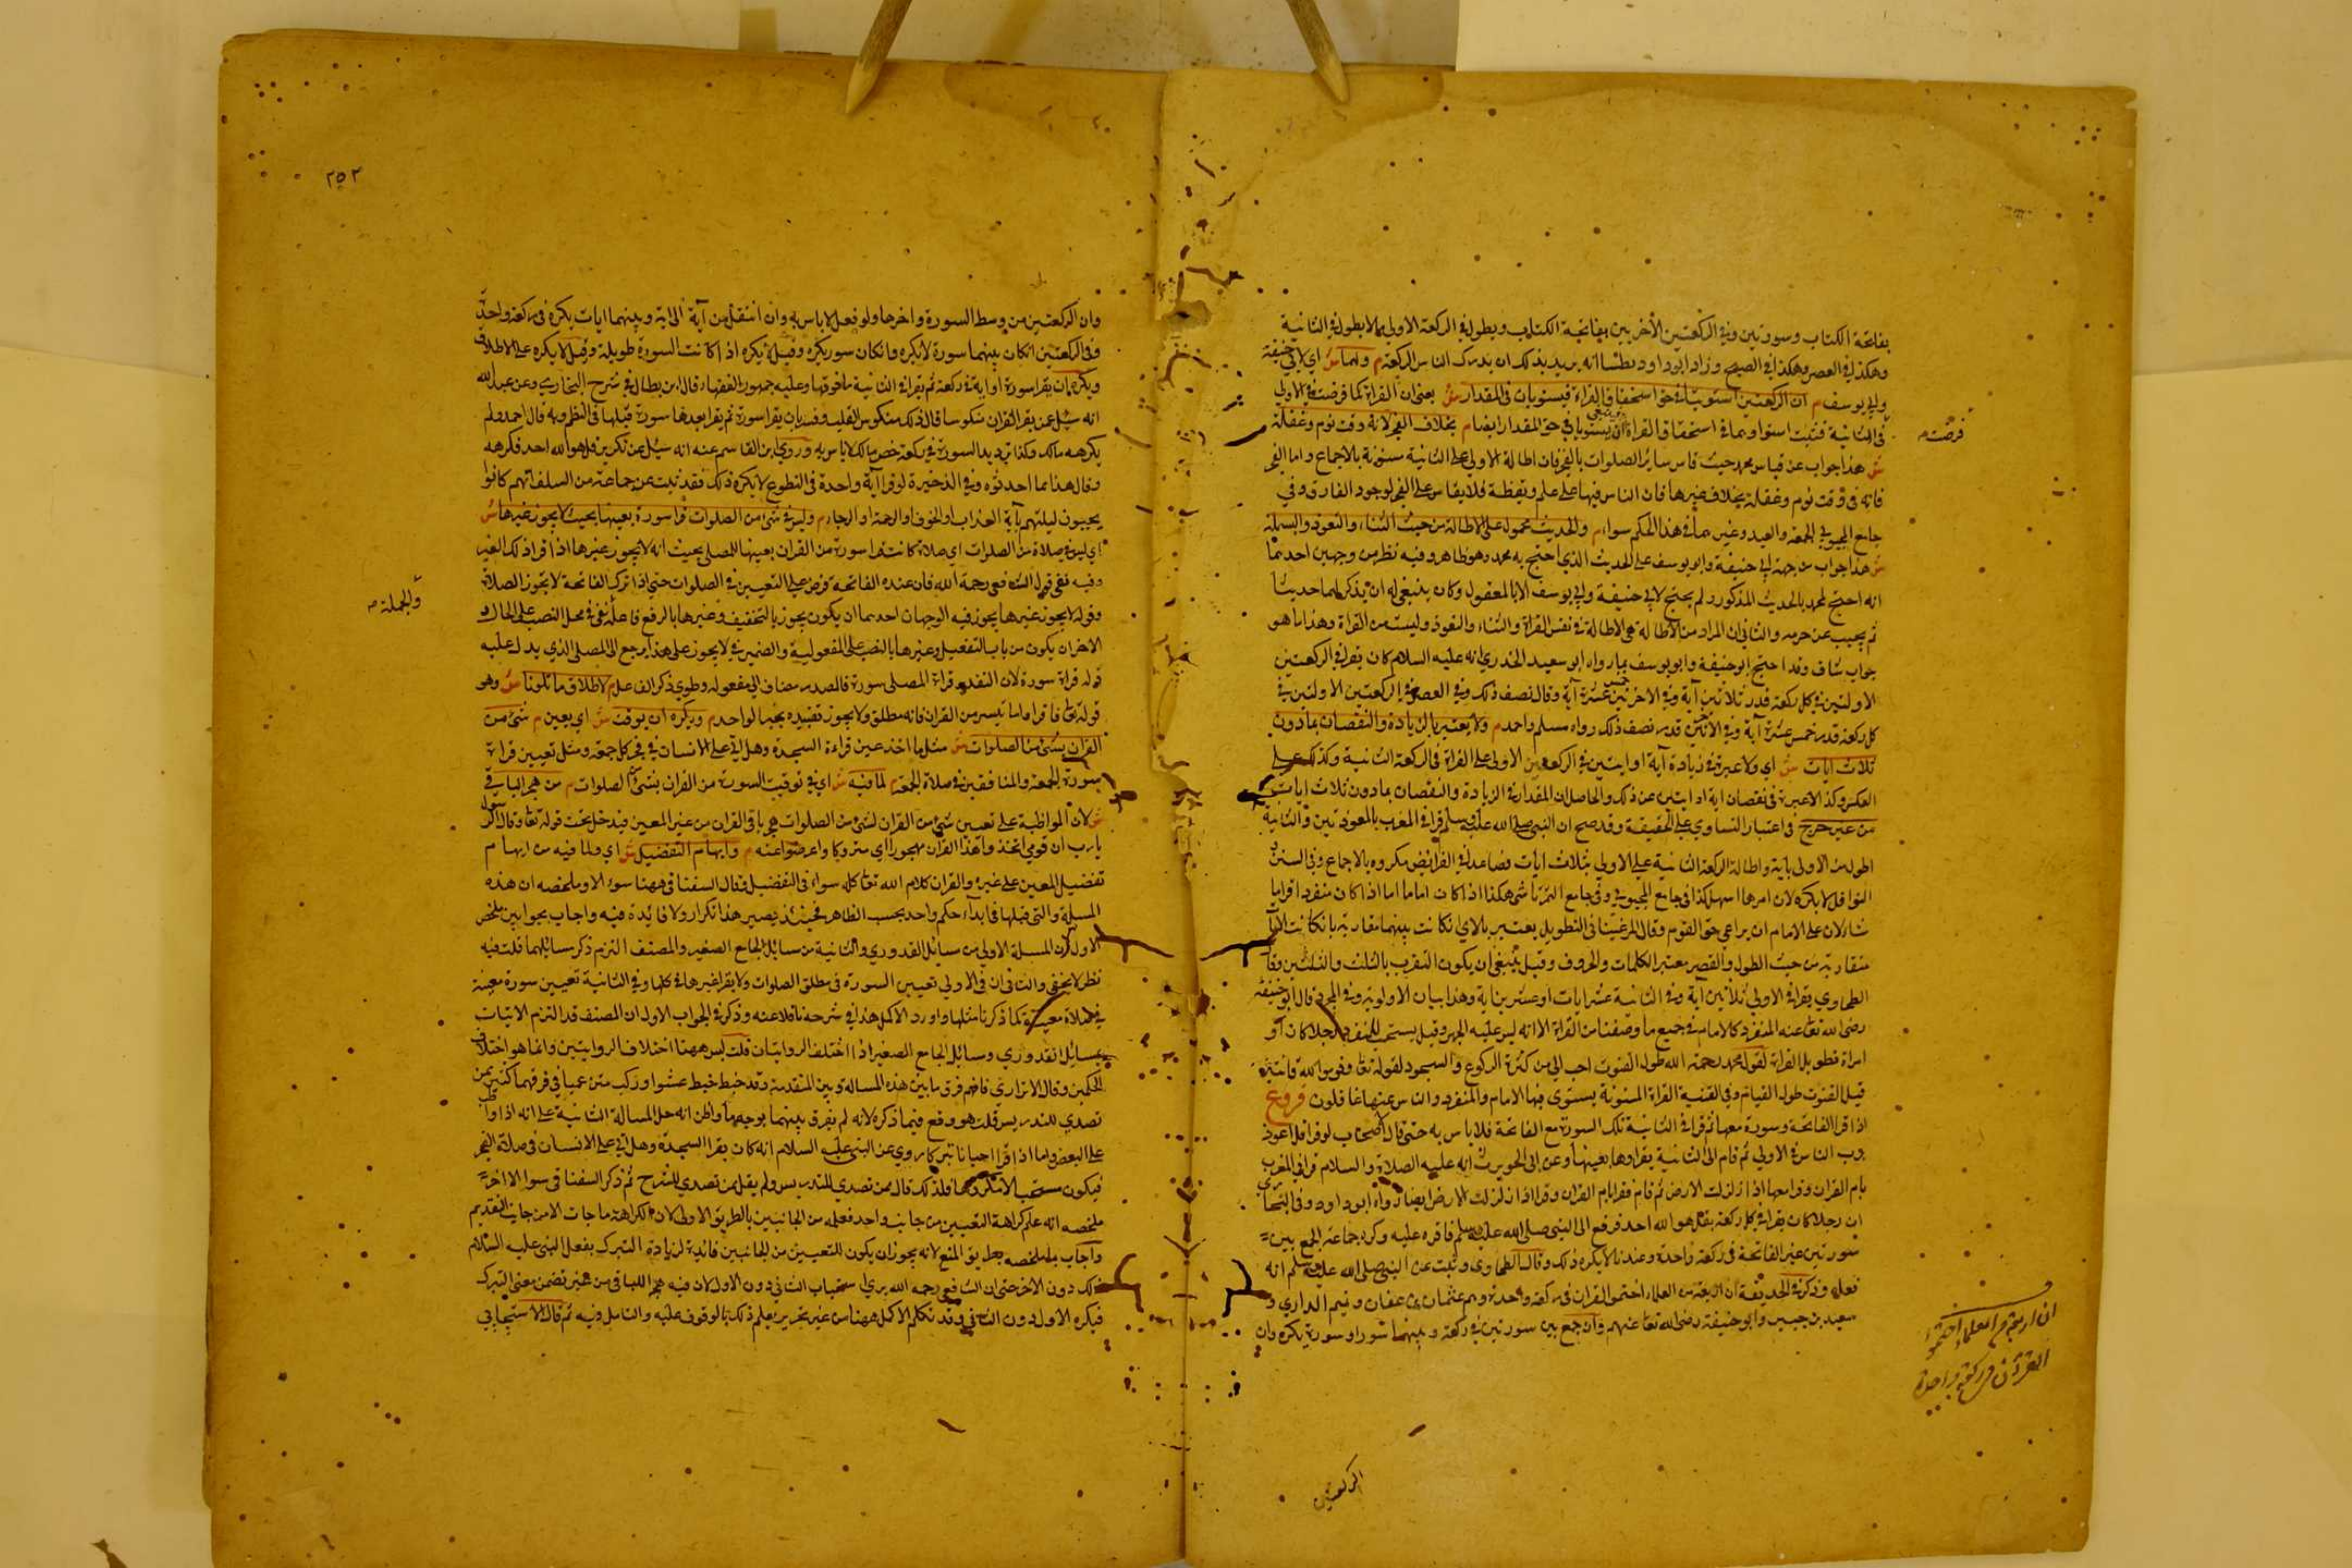 بفاتحة الكتاب وسورتين وفي الركعتين الأخريين بفاتحة الكتاب ويطول في الركعة الاولى ما لا يطول في الثانية
وهكذا في العصر وهكذا في الصبح وزاد ابو داود فظننا انه يريد بذلك ان يدرك الناس الركعة م ولهما ش اي لابي حنيفة
وابي يوسف م ان الركعتين استويتا في حق استحقاق القراءة فيستويان في المقدار ش يعني ان القراءة كما فرضت في الاولى
فرضت م
في الثانية فثبت استواوهما في استحقاق القراءة فينبغي ان يستويا في حق المقدار ايضا م بخلاف الفجر لانه وقت نوم وغفلة
ش هذا جواب عن قياس محمد حيث قاس ساير الصلوات بالفجر فان اطالة الاولى على الثانية مسنونة بالاجماع واما الفجر
فانه في وقت نوم وغفلة بخلاف غيرها فان الناس فيها على علم ويقظة فلا يقاس على الفجر لوجود الفارق وفي
جامع المحبوبي الجمعة والعيد وغيرهما في هذا الحكم سواء م والحديث محمول على الاطالة من حيث الثناء والتعوذ والبسملة
ش هذا جواب من جهة ابي حنيفة وابو يوسف على الحديث الذي احتج به محمد وهو ظاهر وفيه نظر من وجهين احدهما
انه احتج لمحمد بالحديث المذكور ولم يحتج لابي حنيفة وابي يوسف الا بالمعقول وكان ينبغي له ان يذكر لهما حديثا
ثم يجيب عن والثاني ان المراد من الاطالة هي الاطالة في نفس القراءة والثناء والتعوذ وليست من القراءة وهذا ما هو
جواب شاف وقد احتج ابو حنيفة وابو يوسف بما رواه ابو سعيد الخدري انه عليه السلام كان يقرا في الركعتين
الاوليين في كل ركعة قدر ثلاثين آية وفي الاخريين خمس عشرة آية وقال نصف ذلك وفي العصر في الركعتين الاوليين في
كل ركعة قدر خمس عشرة آية وفي قدر نصف ذلك رواه مسلم واحمد م ولا يعتبر بالزيادة والنقصان بما دون
ثلاث ايات ش اي ولا عبرة في زيادة آية او ايتين في الركعة الاولى على القراءة في الركعة الثانية وكذلك على
العكس وكذا لا عبرة في نقصان اية او ايتين عن ذلك والحاصل ان المقدار في الزيادة والنقصان بما دون ثلاث ايات
من غير حرج في اعتبار التساوي على الحقيقة وقد صح ان النبي صلى الله عليه وسلم قرا في المغرب بالمعوذتين والثانية
اطول من الاولى باية واطالة الركعة الثانية على الاولى بثلاث ايات فصاعدا في الفرايض مكروه بالاجماع وفي السنن
النوافل لا يكره لان امرها اسهل كذا في جامع المحبوبي وفي جامع التمرتاشي هكذا اذا كان اماما اما اذا كان منفردا قرا ما
شاء لان على الامام ان يراعي حق القوم وقال المرغيناني التطويل يعتبر بالاي ان كانت بينهما مقاربة بان كانت الآيات
متقاربة من حيث الطول والقصر يعتبر الكلمات والحروف وقيل ينبغي ان يكون التقرب بالثلث والثلثين وقال
الطحاوي يقرا في الاولى ثلاثين آية وفي الثانية عشر ايات او عشرين اية وهذا بيان الاولوية وفي المجرد قال ابو حنيفة
رضي الله تعالى عنه المنفرد كالامام في جميع ما وصفنا من القراءة الا انه ليس عليه الجهر وقيل يستحب للمنفرد رجلا كان او
امراة تطويل القراءة لقول محمد رحمه الله طول القنوت احب الي من كثرة الركوع والسجود لقوله تعالى وقوموا لله قانتين
قيل القنوت طول القيام وفي القنية القراءة المسنونة يستوي فيها الامام والمنفرد والناس عنها غافلون فروع
اذا قرا الفاتحة وسورة معها ثم قرا في الثانية تلك السورة مع الفاتحة فلا باس به حتى قال اصحاب لو قرا قل اعوذ
برب الناس في الاولى ثم قام الى الثانية يقراوها بعينها وعن ابي الحويرث انه عليه الصلاة والسلام قرا في المغرب
بام القران وقرا معها اذا زلزلت الارض ثم قام فقرا بام القران وقرا اذا زلزلت الارض ايضا رواه ابو داود وفي البخاري
ان رجلا كان يقرا في كل ركعة بقل هو الله احد فرفع الى النبي صلى الله عليه وسلم فاقره عليه وكره جماعة الجمع بين
سورتين غير الفاتحة في ركعة واحدة وعندنا لا يكره ذلك وقال الطحاوي وثبت عن النبي صلى الله عليه وسلم انه
فعله وذكر في الحديقة ان اربعة من العلماء اختموا القران في ركعة واحدة وهم عثمان بن عفان وتميم الداري و
سعيد بن جبير وابو حنيفة رضي الله تعالى عنهم وان جمع بين سورتين في ركعة وبينهما سور او سورة يكره وان
ان اربعة من العلماء اختموا
القرآن في ركعة واحدة
الركعتين
٢٥٢
وان الركعتين من وسط السورة واخرها ولو فعل لا باس به وان انتقل من آية الى اية وبينهما ايات يكره في ركعة واحدة
وفي الركعتين ان كان بينهما سورة لا يكره وان كان سور يكره وقيل لا يكره اذا كانت السورة طويلة وقيل لا يكره على الاطلاق
ويكره ان يقرا سورة او اية في ركعة ثم يقرا في الثانية ما فوقها وعليه جمهور الفقهاء قال ابن بطال في شرح البخاري وعن عبد الله
انه سئل عمن يقرا القران منكوسا قال ذلك منكوس القلب وفسر بان يقرا سورة ثم يقرا بعدها سورة قبلها في النظم وبه قال احمد ولم
يكرهه مالك وكذا ترديد السورة في ركعة خص مالك لا باس به وروى ابن القاسم عنه انه سئل عن تكرير قل هو الله احد فكرهه
وقال هذا مما احدثوه وفي الذخيرة لو قرا آية واحدة في التطوع لا يكره ذلك فقد ثبت عن جماعة من السلف انهم كانوا
يحيون ليلتهم بآية العذاب او الخوف او الرحمة او الرجاء م وليس في شئ من الصلوات قرا سورة بعينها بحيث لا يجوز غيرها ش
اي ليس في صلاة من الصلوات اي صلاة كانت قرا سورة من القران بعينها للمصلي بحيث انه لا يجوز غيرها اذا قرا ذلك الغير
وفيه نفي قول الشافعي رحمه الله فان عنده الفاتحة فرض على التعيين في الصلوات حتى اذا ترك الفاتحة لا يجوز الصلاة
وقوله لا يجوز غيرها يجوز فيه الوجهان احدهما ان يكون يجوز بالتخفيف وغيرها بالرفع فاعله في محل النصب على الحال و
والجملة م
الاخر ان يكون من باب التفعيل وغيرها بالنصب على المفعولية والضمير في لا يجوز على هذا يرجع الى المصلي الذي يدل عليه
قوله قراءة سورة لان التقدير قراءة المصلي سورة فالمصدر مضاف الى مفعوله وطوي ذكر الفاعل م لاطلاق ما تلونا ش وهو
قوله تعالى فاقروا ما تيسر من القران فانه مطلق ولا يجوز تقييده بخبر الواحد م ويكره ان يوقت ش اي يعين م شئ من
القران بشئ من الصلوات ش مثل ما اخذ عين قراءة السجدة وهل اتى على الانسان في فجر كل جمعة ومثل تعيين قراءة
سورة الجمعة والمنافقين في صلاة الجمعة م لما فيه ش اي في توقيت السورة من القران بشئ من الصلوات م من هجر الباقي
ش لان المواظبة على تعيين شئ من القران لشئ من الصلوات هجر باقي القران من غير المعين فيدخل تحت قوله تعالى وقال الرسول
يا رب ان قومي اتخذوا هذا القران مهجورا اي متروكا واعرضوا عنه م وايهام التفضيل ش اي ولما فيه من ايهام
تفضيل المعين على غيره والقران كلام الله تعالى كله سواء في التفضيل فقال السغناقي ههنا سوال وملخصه ان هذه
المسالة والتي قبلها في ابداء حكم واحد بحسب الظاهر فحينئذ يصير هذا تكرارا ولا فايدة فيه واجاب بجوابين ملخص
الاول ان المسالة الاولى من مسايل القدوري والثانية من مسايل الجامع الصغير والمصنف التزم ذكر مسايلهما قلت فيه
نظر لا يخفى والثاني ان في الاولى تعيين السورة في مطلق الصلوات ولا يقرا غيرها في كلها وفي الثانية تعيين سورة معينة
في صلاة معينة كما ذكرنا مثلها واورد الاكمل هذا في شرحه ناقلا عنه وذكر في الجواب الاول ان المصنف قد التزم الاتيان
بمسايل القدوري ومسايل الجامع الصغير اذا اختلف الروايتان قلت ليس ههنا اختلاف الروايتين وانما هو اختلاف
الحكمين وقال الاترازي فافهم فرق ما بين هذه المسالة وبين المتقدمة وقد خبط خبط عشوا وركب متن عميا في فرقهما كثير ممن
تصدى للتدريس قلت هو وقع فيما ذكره لانه لم يفرق بينهما بوجه ما واظن انه حل المسالة الثانية على انه اذا واظب
على البعض واما اذا قرا احيانا تبركا روي عن النبي عليه السلام انه كان يقرا السجدة وهل اتى على الانسان في صلاة الفجر
فيكون مستحبا لا مكروها فلذلك قال ممن تصدى للتدريس ولم يقل ممن تصدى للشرح ثم ذكر السغناقي سوالا اخر
ملخصه انه علم كراهة التعيين من جانب واحد فعلمه من الجانبين بالطريق الاولى لان الكراهة ما جات الا من جانب التقديم
واجاب بما ملخصه بطريق المنع لانه يجوز ان يكون للتعيين من الجانبين فايدة لزيادة التبرك بفعل النبي عليه السلام
ذلك دون الاخر حتى ان الشافعي رحمه الله يرى استحباب الثاني دون الاول لان فيه هجر الباقي من غير تضمن معنى التبرك
فيكره الاول دون الثاني وقد تكلم الاكمل ههنا من غير تحرير يعلم ذلك بالوقوف عليه والتامل فيه ثم قال الاسبيجابي